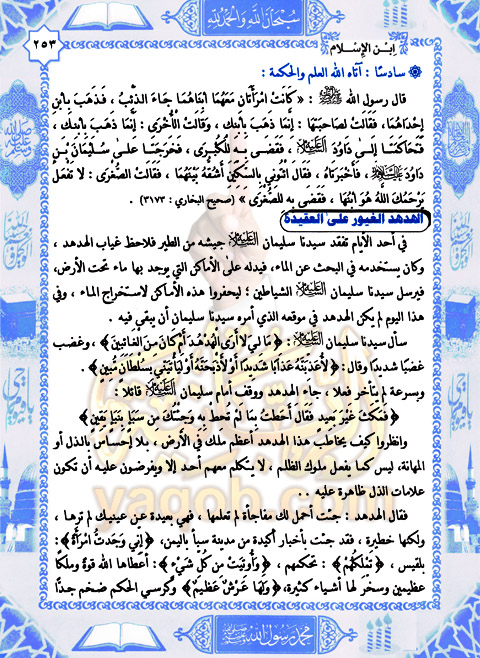 سبحان الله والحمد لله
٢٥٣
ابن الإسلام
سادسًا : آتاه الله العلم والحكمة :
قال رسول الله ﷺ : « كَانَتْ امْرَأَتَانِ مَعَهُمَا ابْنَاهُمَا جَاءَ الذِّئْبُ ، فَذَهَبَ بِابْنِ
إِحْدَاهُمَا ، فَقَالَتْ لِصَاحِبَتِهَا : إِنَّمَا ذَهَبَ بِابْنِكِ ، وَقَالَتْ الْأُخْرَى : إِنَّمَا ذَهَبَ بِابْنِكِ ،
فَتَحَاكَمَتَا إِلَى دَاوُدَ الْتَلِيْكُلا ، فَقَضَى بِهِ لِلْكُبْرَى ، فَخَرَجَتَا عَلَى سُلَيْمَانَ بْنِ
دَاوُدَ ، فَأَخْبَرَتَاهُ ، فَقَالَ ائْتُونِي بِالسِّكِّينِ أَشُقُّهُ بَيْنَهُمَا ، فَقَالَتْ الصُّغْرَى : لَا تَفْعَلْ
يَرْحَمُكَ اللَّهُ هُوَ ابْنُهَا ، فَقَضَى بِهِ لِلصُّغْرَى » (صحيح البخاري : ٣١٧٣) .
الهدهد الغيور على العقيدة
في أحد الأيام تفقد سيدنا سليمان جيشه من الطير فلاحظ غياب الهدهد ،
وكان يستخدمه في البحث عن الماء، فيدله على الأماكن التي يوجد بها ماء تحت الأرض،
فيرسل سيدنا سليمان الشياطين ؛ ليحفروا هذه الأماكن لاستخراج الماء ، وفي
هذا اليوم لم يكن الهدهد في موقعه الذي أمره سيدنا سليمان أن يبقى فيه .
سأل سيدنا سليمان : ﴿مَا لِيَ لَا أَرَى الْهُدْهُدَ أَمْ كَانَ مِنَ الْغَائِبِينَ﴾ ، وغضب
غضبًا شديدًا وقال: ﴿لَأُعَذِّبَنَّهُ عَذَابًا شَدِيدًا أَوْ لَأَذْبَحَنَّهُ أَوْ لَيَأْتِيَنِّي بِسُلْطَانٍ مُّبِينٍ﴾ .
وبسرعة لم يتأخر فعلا ، جاء الهدهد ووقف أمام سليمان قائلاً :
﴿فَمَكَثَ غَيْرَ بَعِيدٍ فَقَالَ أَحَطتُ بِمَا لَمْ تُحِطْ بِهِ وَجِئْتُكَ مِن سَبَإٍ بِنَبَإٍ يَقِينٍ﴾
وانظروا كيف يخاطب هذا الهدهد أعظم ملك في الأرض ، بلا إحساس بالذل أو
المهانة، ليس كما يفعل ملوك الظلم ، لا يتكلم معهم أحد إلا ويفرضون عليه أن تكون
علامات الذل ظاهرة عليه . .
فقال الهدهد : جئت أحمل لك مفاجأة لم تعلمها ، فهي بعيدة عن عينيك لم ترها ،
ولكنها خطيرة ، فقد جئت بأخبار أكيدة من مدينة سبأ باليمن، ﴿إِنِّي وَجَدتُّ امْرَأَةً﴾ :
بلقيس ، ﴿تَمْلِكُهُمْ﴾ : تحكمهم ، ﴿وَأُوتِيَتْ مِن كُلِّ شَيْءٍ﴾ : أعطاها الله قوة وملكًا
عظيمين وسخر لها أشياء كثيرة، ﴿وَلَهَا عَرْشٌ عَظِيمٌ﴾ وكرسي الحكم ضخم جدًا
yagob.com
محمد رسول الله ﷺ